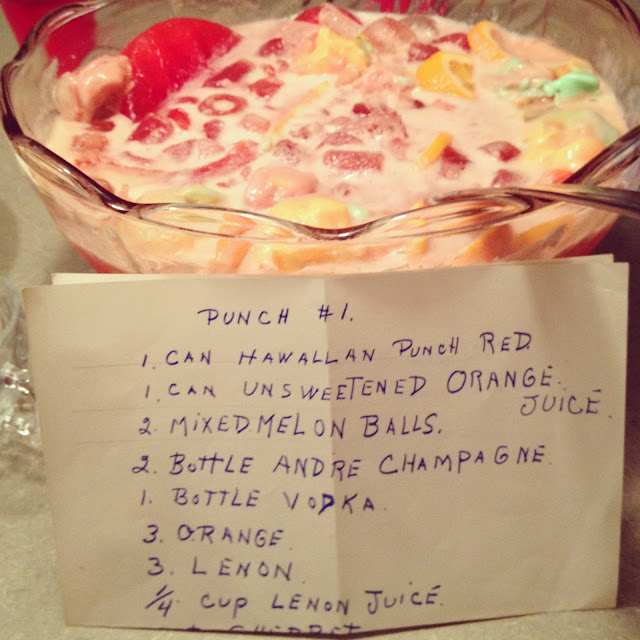 PUNCH #1.
1. CAN HAWALLAN PUNCH RED.
1. CAN UNSWEETENED ORANGE.
JUICE.
2. MIXED MELON BALLS.
2. BOTTLE ANDRE CHAMPAGNE.
1. BOTTLE VODKA.
3. ORANGE.
3. LENON.
1/4 CUP LENON JUICE.
SHERBET